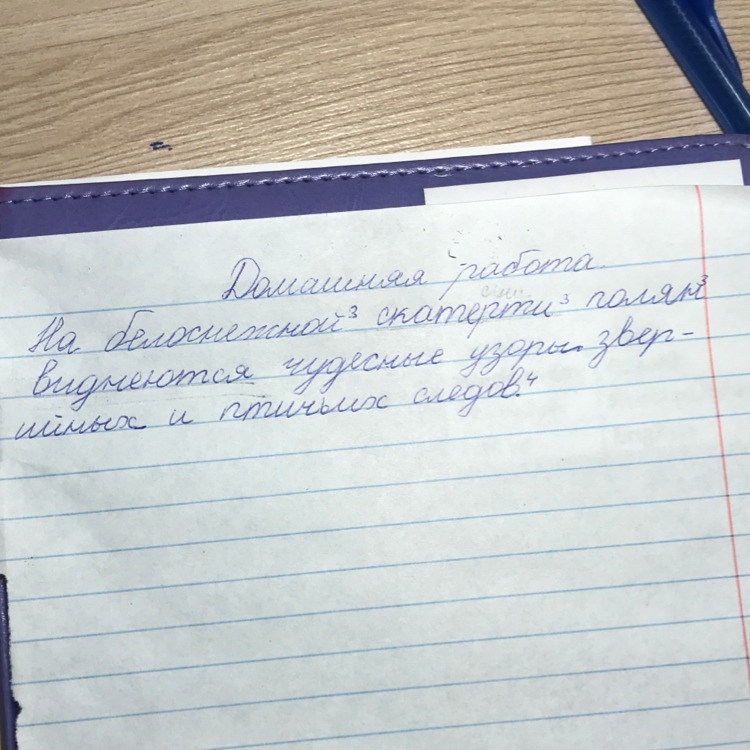 Домашняя работа.
На белоснежной³ скатерти³ полян³
виднеются чудесные узоры звер-
иных и птичьих следов.⁴